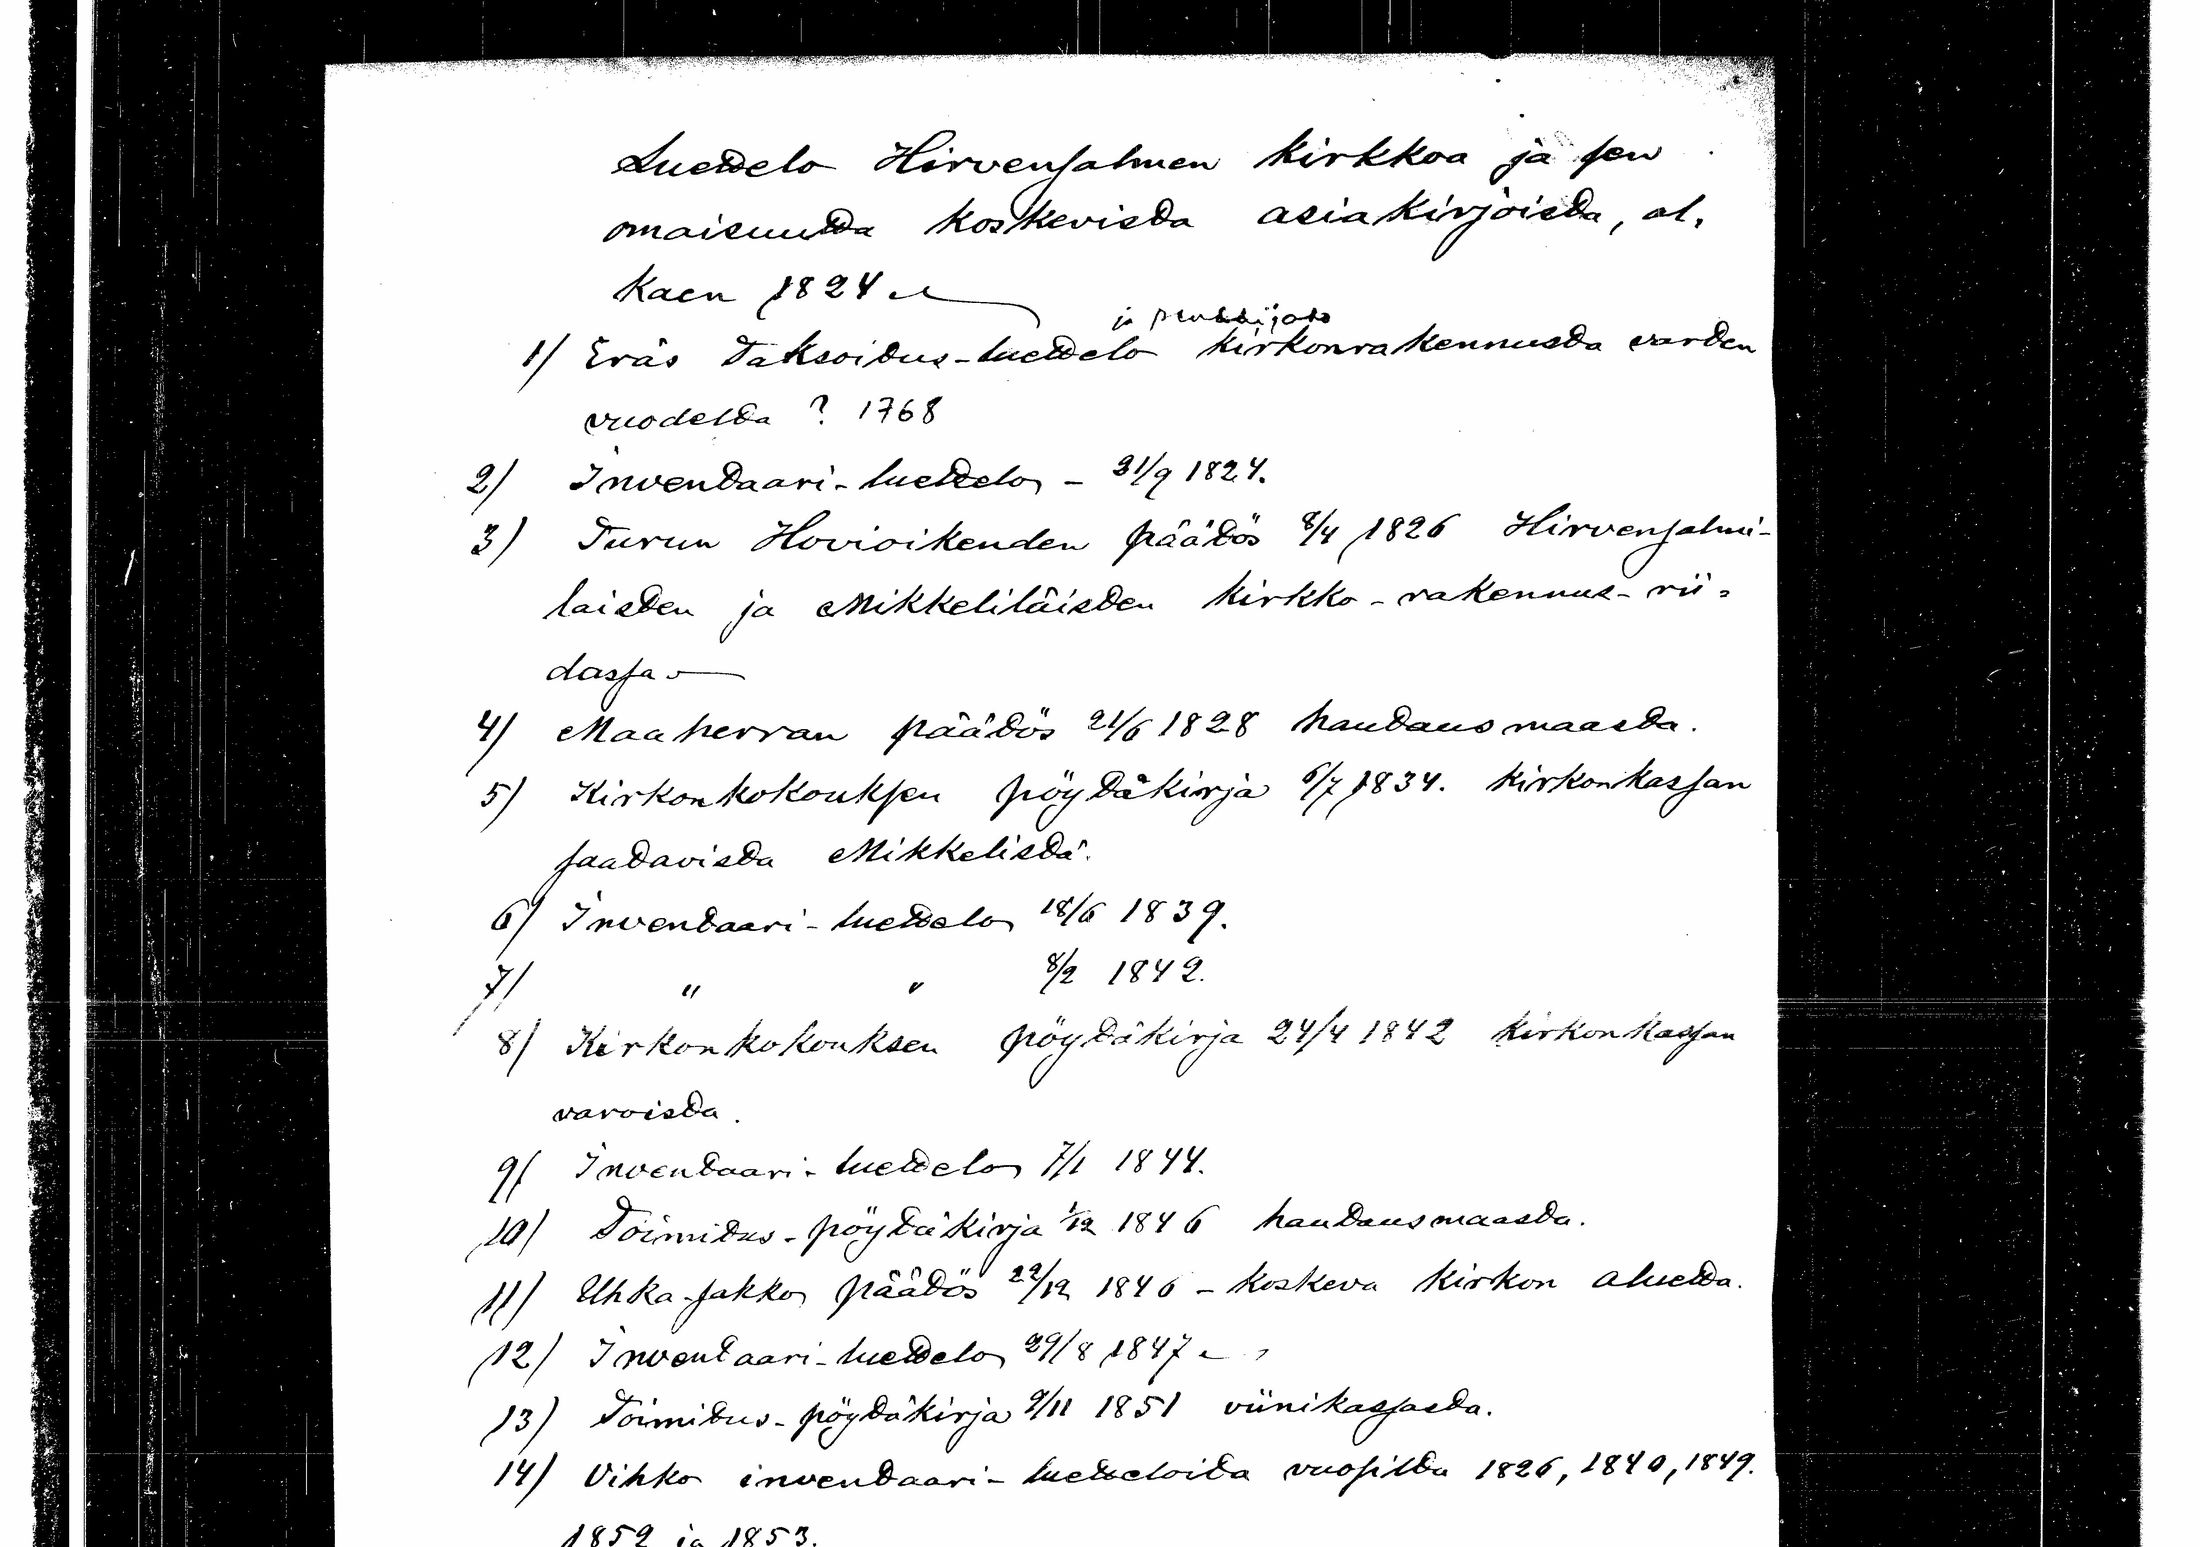 Luettelo Hirvensalmen kirkkoa ja sen
omaisuutta koskevista asiakirjoista, al-
kaen 1824
ja penkkijako
1) Eräs taksoitus-luettelo kirkonrakennusta varten
vuodelta ? 1768
2) Inventaari-luettelo - 21/9 1824.
3) Turun Hovioikeuden päätös 8/4 1826 Hirvensalmi-
laisten ja Mikkeliläisten kirkko-rakennus-rii-
dassa
4) Maaherran päätös 21/6 1828 hautausmaasta.
5) Kirkonkokouksen pöytäkirja 6/7 1834. kirkonkassan
saatavista Mikkelistä.
6) Inventaari-luettelo 18/6 1839.
7) " " 8/2 1842.
8) Kirkonkokouksen pöytäkirja 24/4 1842 kirkonkassan
varoista.
9) Inventaari-luettelo 7/1 1844.
10) Toimitus-pöytäkirja 1/12 1846 hautausmaasta.
11) Uhka-sakko päätös 22/12 1846 - koskeva kirkon aluetta.
12) Inventaari-luettelo 29/8 1847
13) Toimitus-pöytäkirja 9/11 1851 viinikassasta.
14) Vihko inventaari-luetteloita vuosilta 1826, 1840, 1849.
1852 ja 1853.